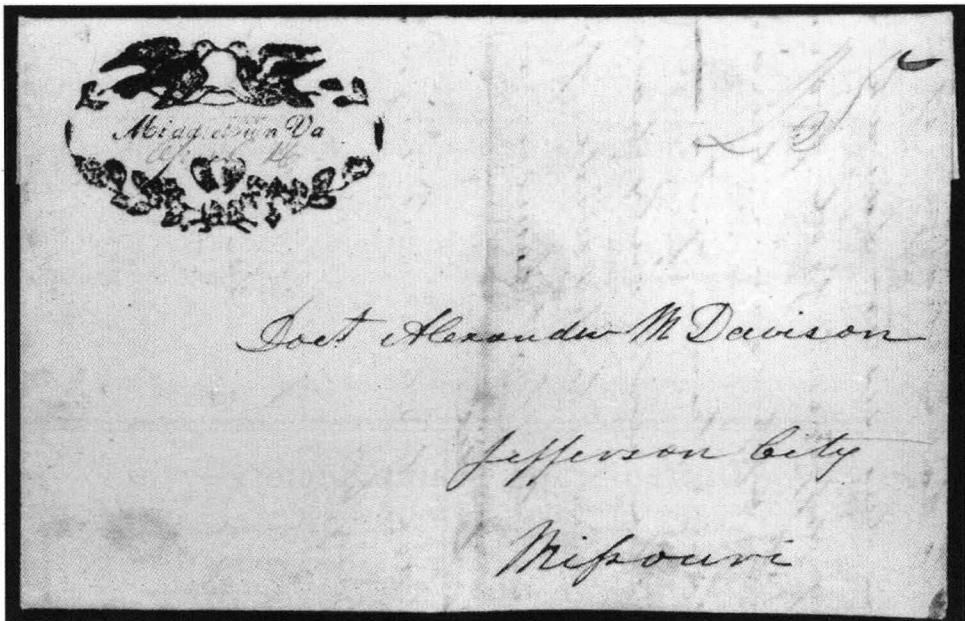 Middletown Va
April 16
25
Doct Alexander M Davison
Jefferson City
Missouri